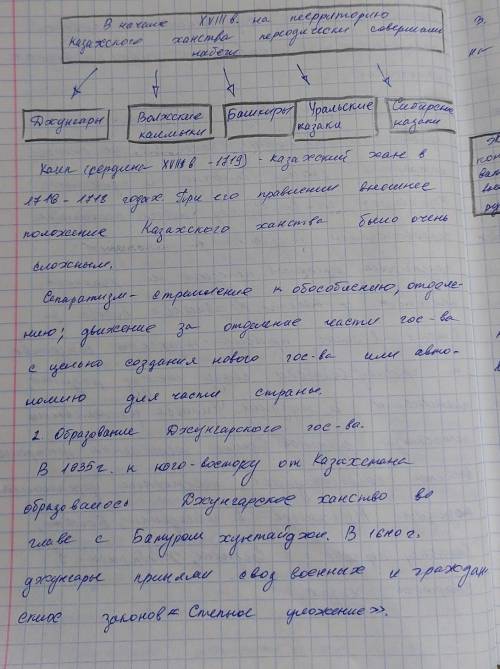 В начале XVIII в. на территорию
Казахского ханства периодически совершали
набеги
Джунгары
Волжские
калмыки
Башкиры
Уральские
казаки
Сибирские
казаки
Каип (середина XVIII в -1719) - казахский хан в
1716 - 1718 годах. При его правлении внешнее
положение Казахского ханства было очень
сложным.
Сепаратизм - стремление к обособлению, отделе-
нию; движение за отделение части гос-ва
с целью создания нового гос-ва или авто-
номию для части страны.
2. Образование Джунгарского гос-ва.
В 1635 г. к юго-востоку от Казахстана
образовалось Джунгарское ханство во
главе с Батуром хунтайджи. В 1640 г.
джунгары приняли свод военных и граждан
ских законов « Степное уложение».